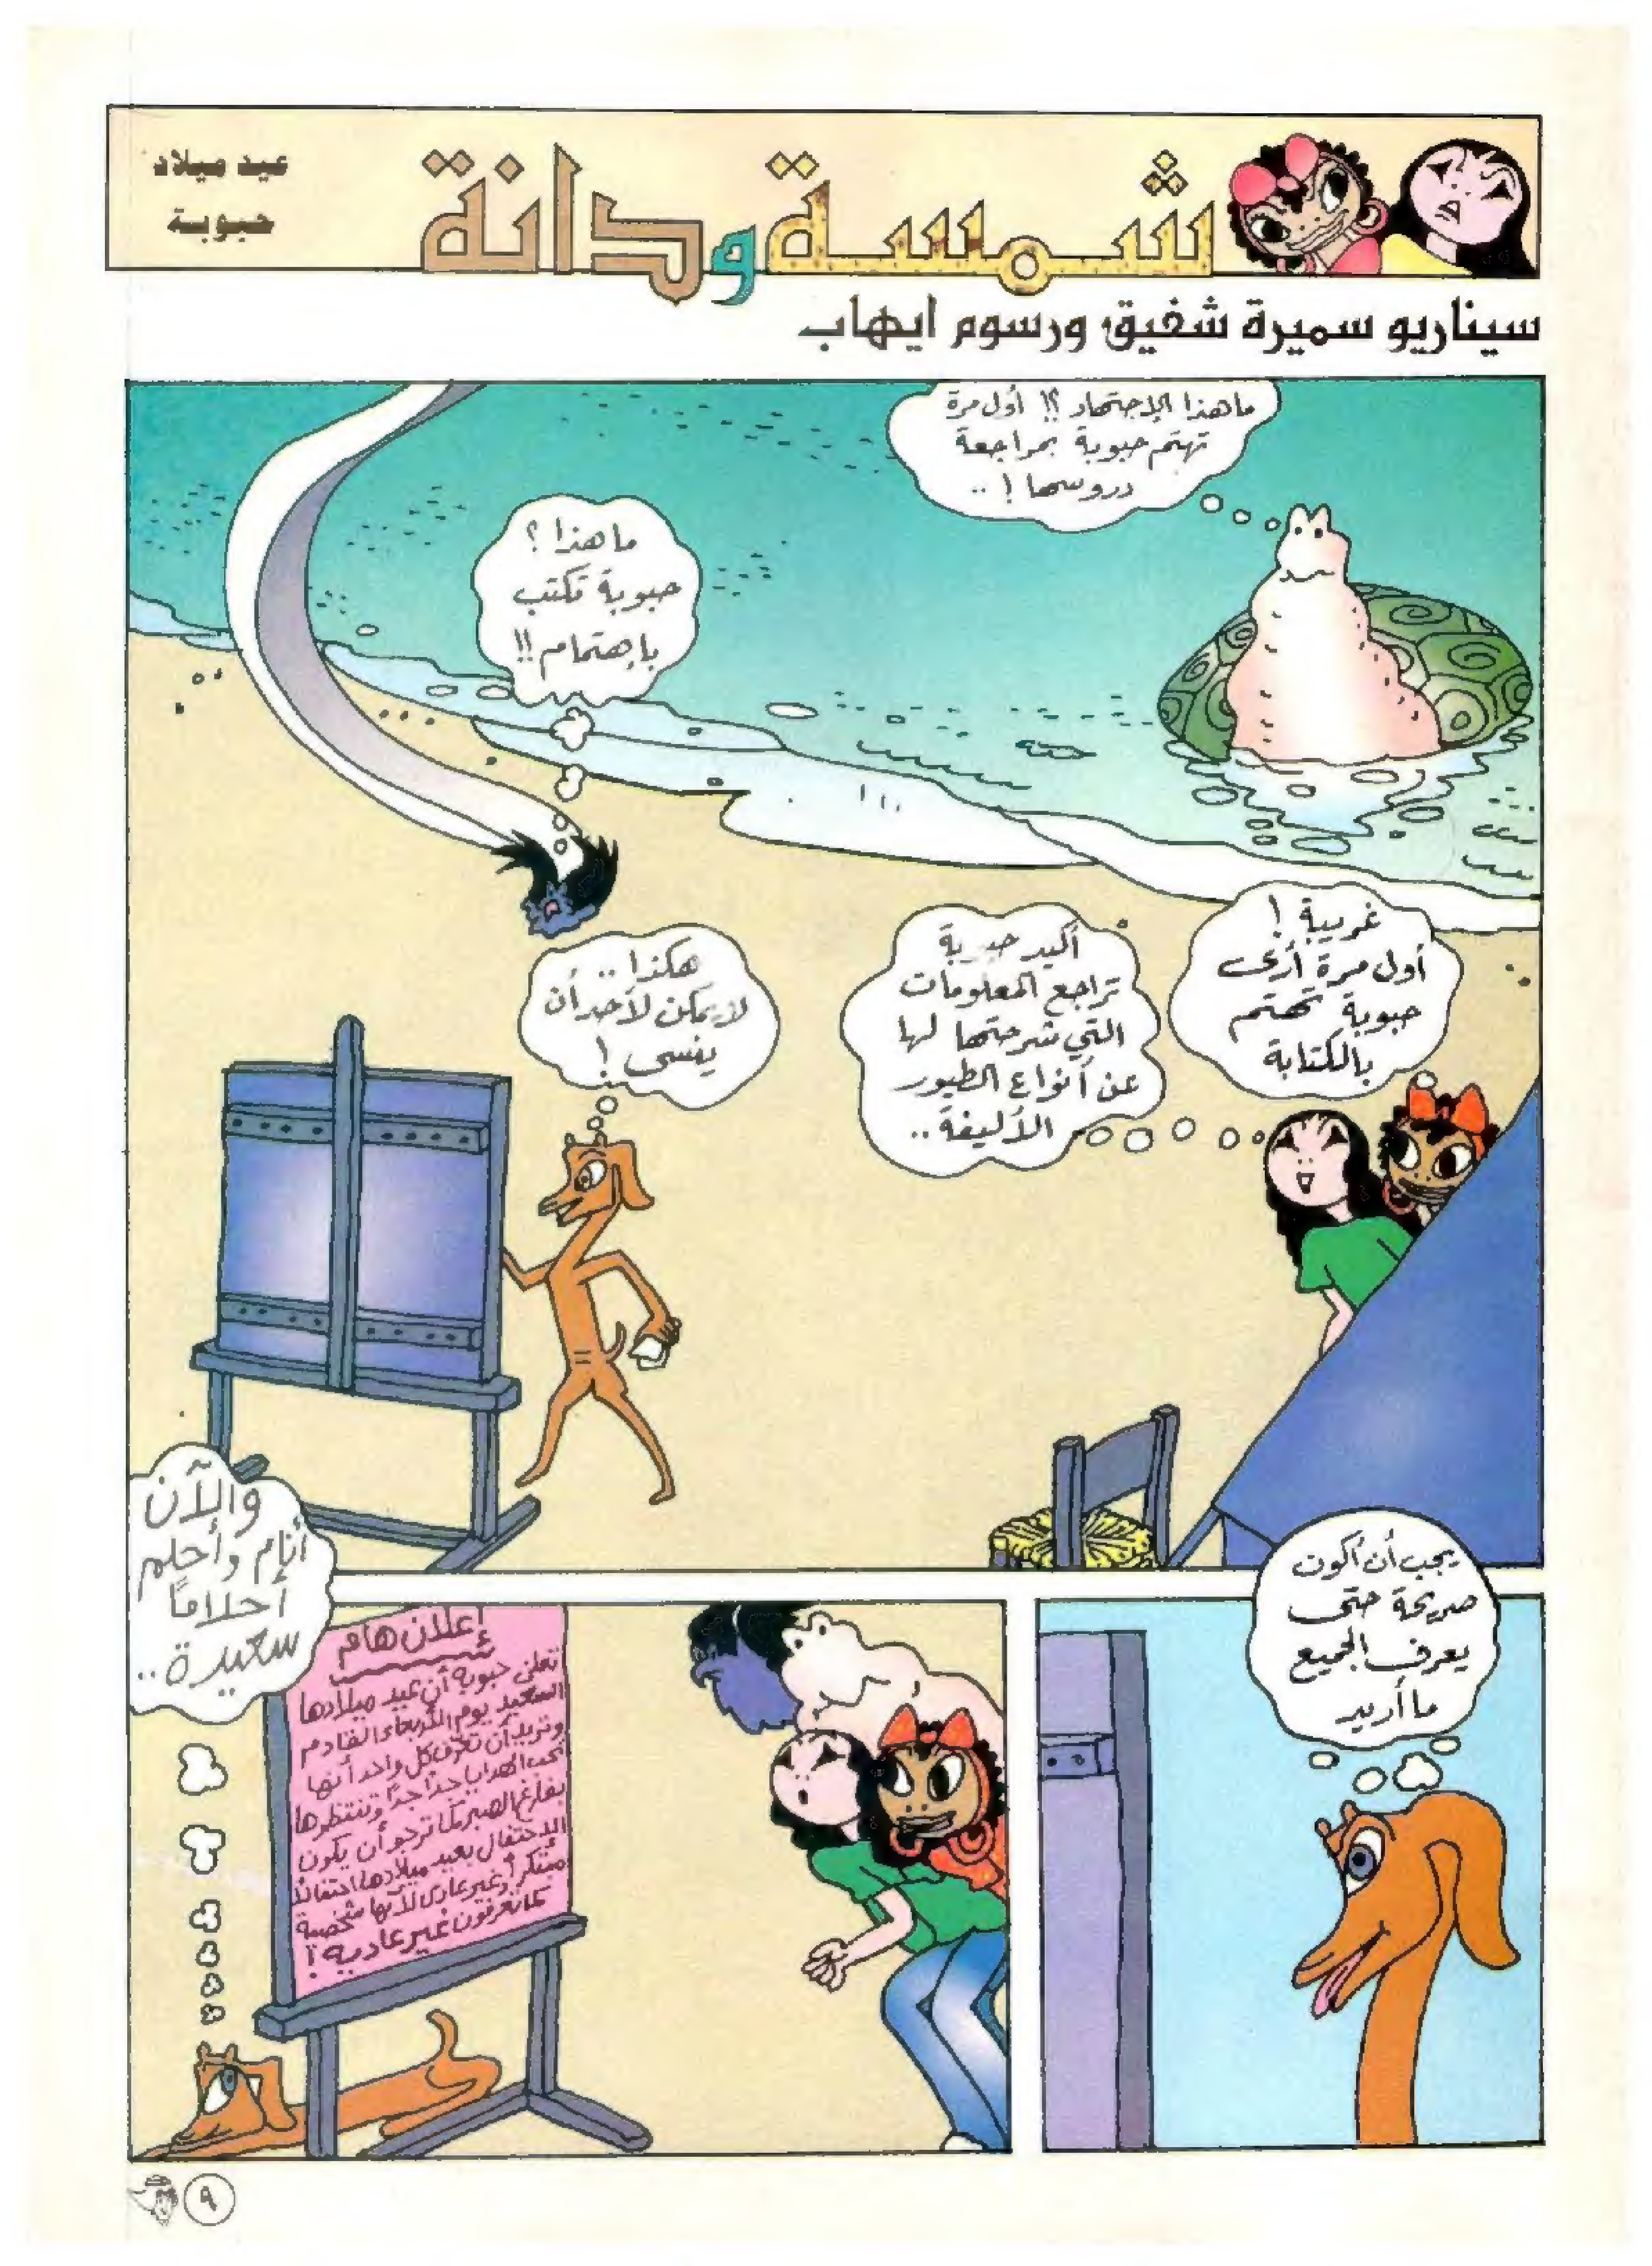 شمسة ودانة
عيد ميلاد
حبوبة
سيناريو سميرة شفيق ورسوم ايهاب
ما هذا الإجتهاد ؟! أول مرة
تهتم حبوبة بمراجعة
دروسها ! ..
ما هذا ؟
حبوبة تكتب
باهتمام !!
غريبة !
أول مرة أرى
حبوبة تهتم
بالكتابة
أكيد حبوبة
تراجع المعلومات
التي شرحتها لها
عن أنواع الطيور
الأليفة ..
هكذا ..
لا يمكن لأحد أن
ينسى !
يجب أن أكون
صريحة حتى
يعرف الجميع
ما أريد
إعلان هام
تعلن حبوبة أن عيد ميلادها
السعيد يوم الأربعاء القادم
وتريد أن تعرف كل واحد أنها
تحب الهدايا جداً جداً وتنتظرها
بفارغ الصبر كما ترجو أن يكون
الاحتفال بعيد ميلادها احتفالاً
مبتكراً وغير عادى لأنها شخصية
كما تعرفون غير عادية !
والآن
أنام وأحلم
أحلاماً
سعيدة ..
٩